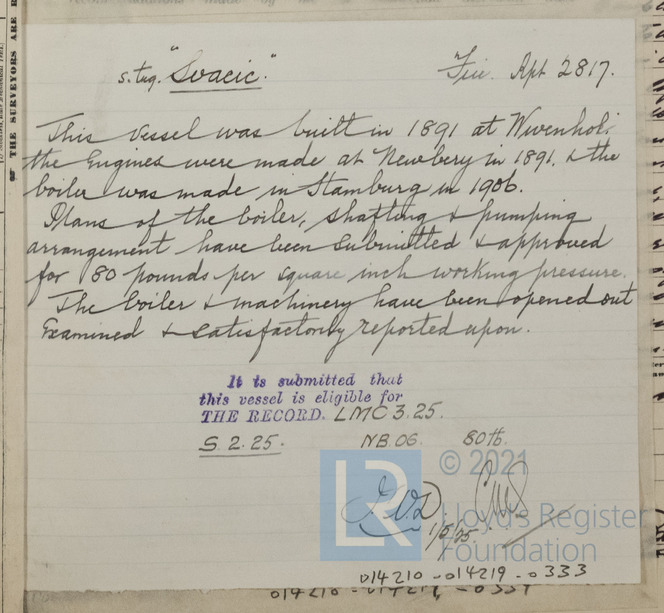 s. tug. "Svacic."
Fiu. Rpt 2817.
This vessel was built in 1891 at Wivenhoe;
the Engines were made at Newbery in 1891. & the
boiler was made in Hamburg in 1906.
Plans of the boiler, shafting & pumping
arrangement have been submitted & approved
for 80 pounds per square inch working pressure.
The boiler & machinery have been opened out
Examined & satisfactorily reported upon.
It is submitted that
this vessel is eligible for
THE RECORD. LMC 3.25.
S. 2.25. NB.06. 80lb.
© 2021
LR
Lloyd's Register
Foundation
1/5/25.
014210-014219-0333
THE SURVEYORS ARE R